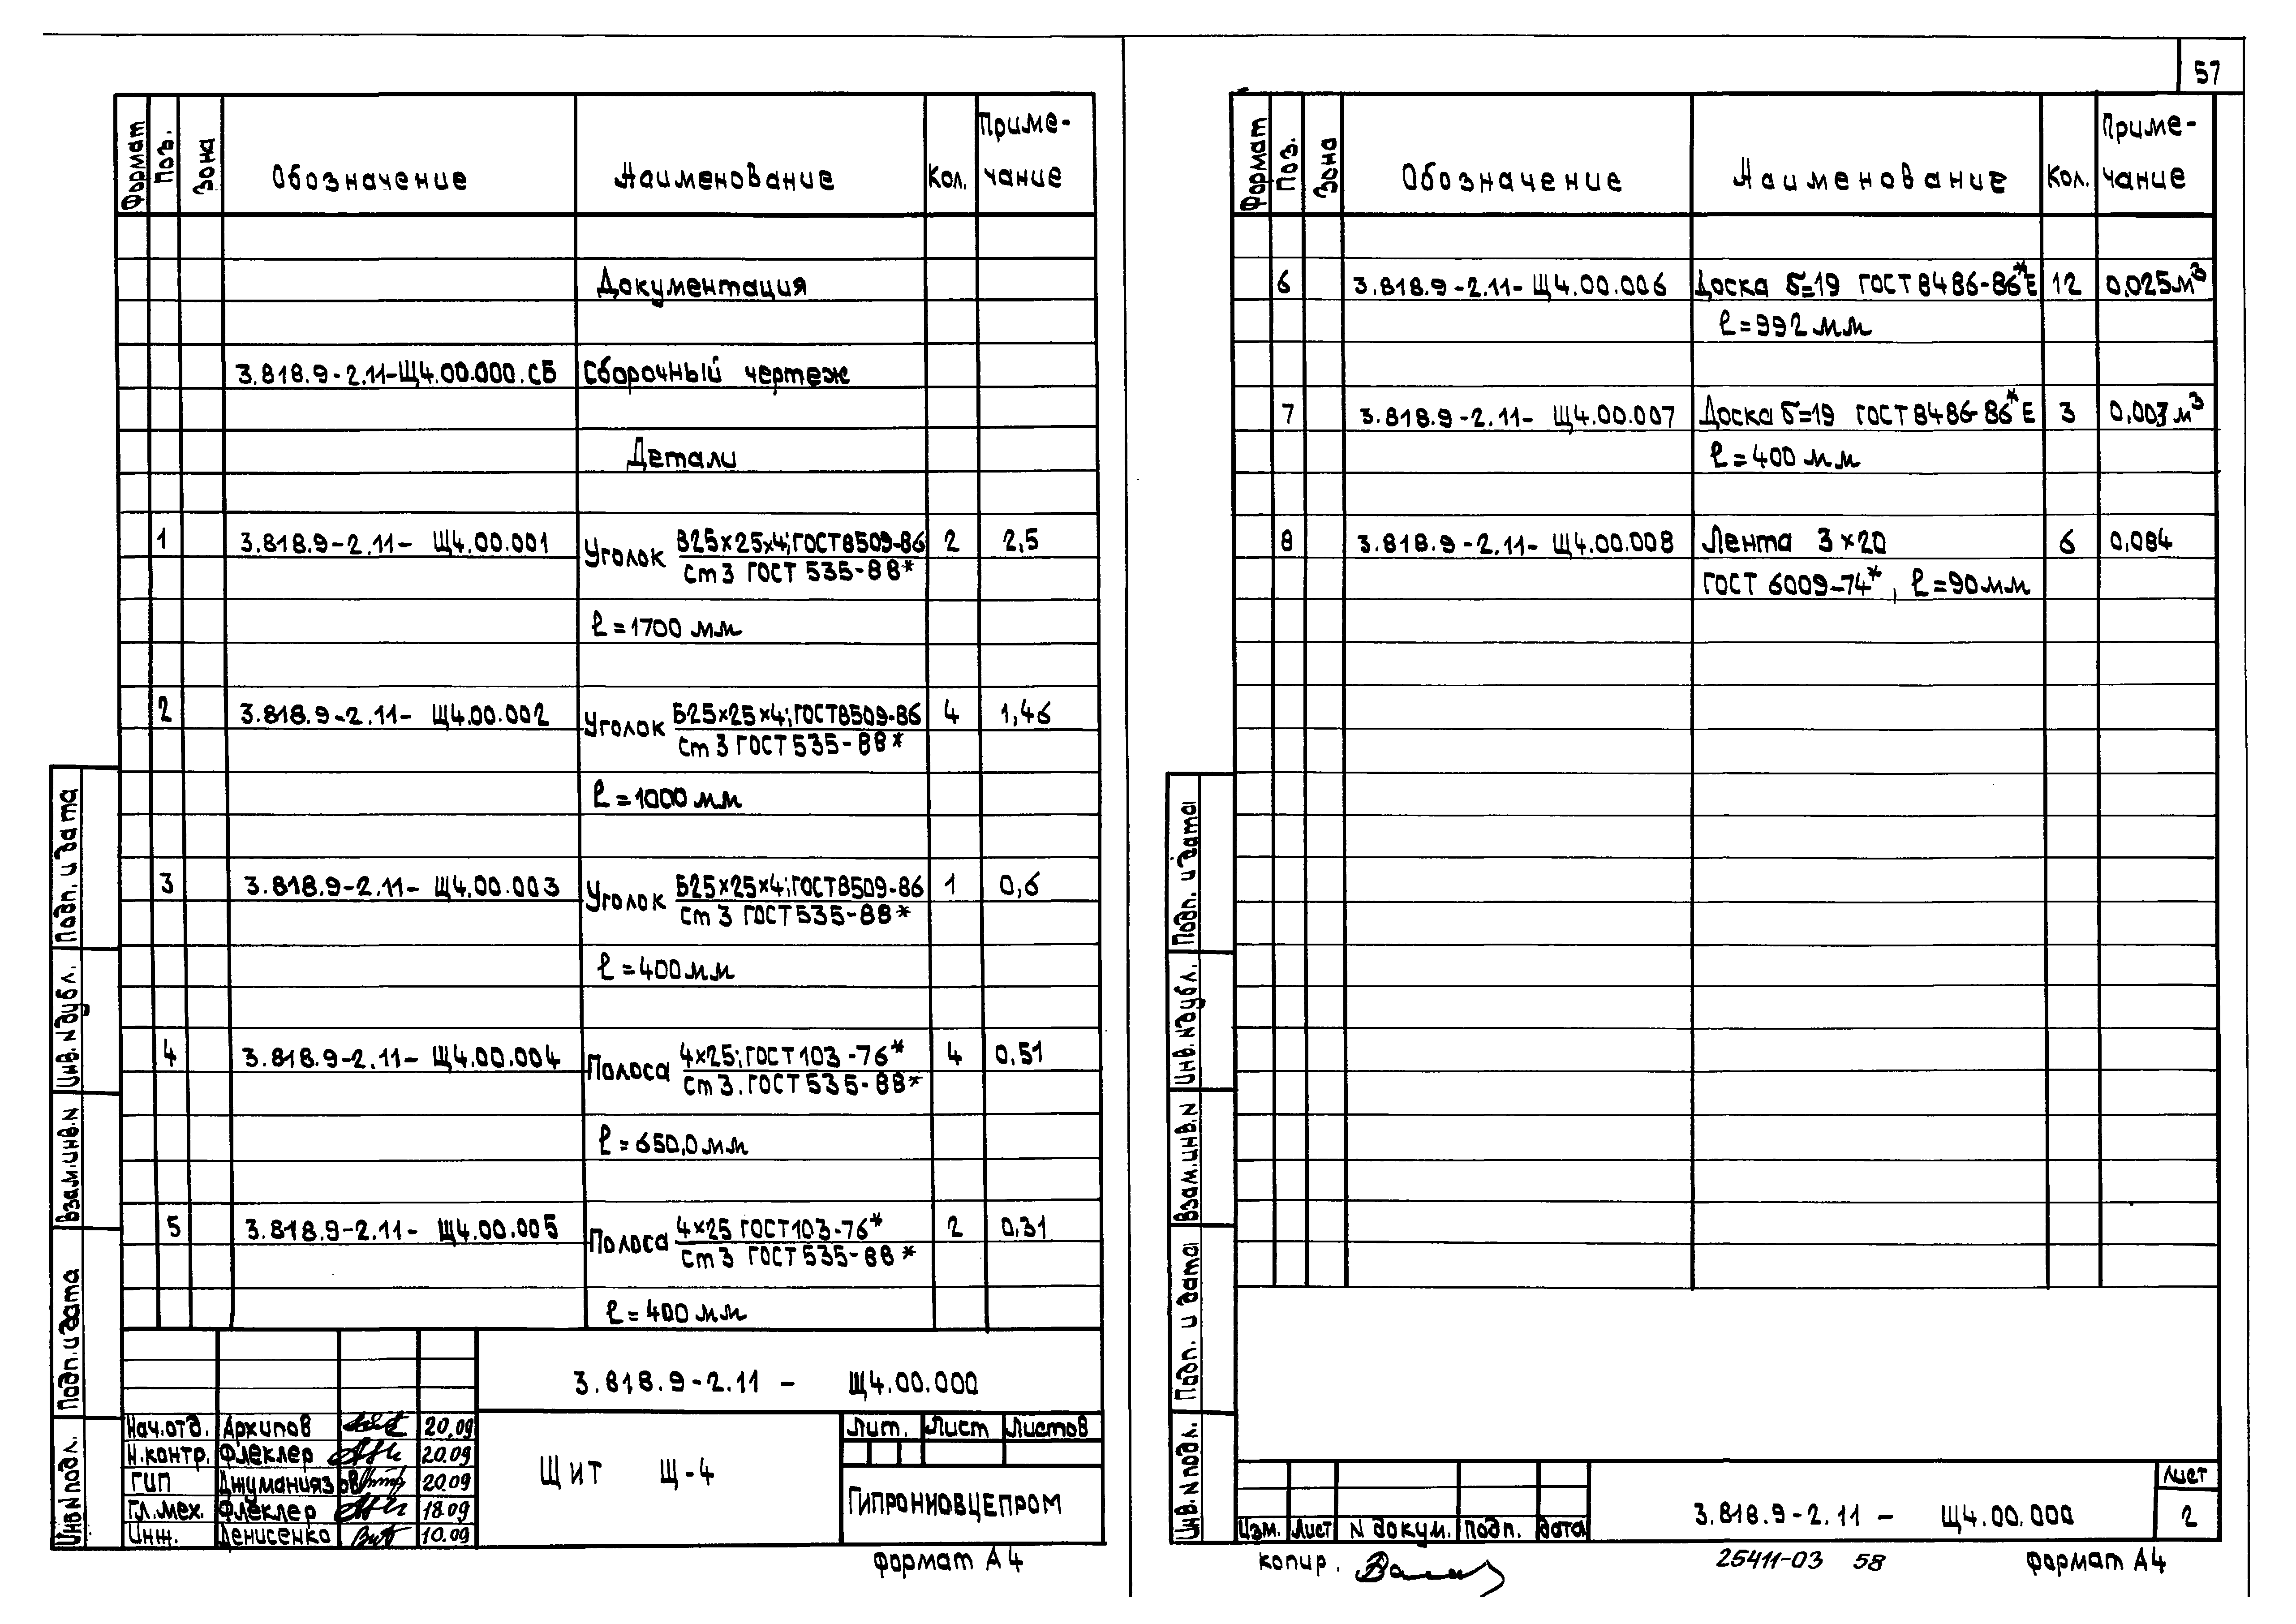 57
Формат Поз. Зона Обозначение Наименование Кол. Приме-
чание
Документация
3.818.9-2.11-Щ4.00.000.СБ Сборочный чертеж
Детали
1 3.818.9-2.11- Щ4.00.001 Уголок В25×25×4; ГОСТ 8509-86 2 2,5
Ст3 ГОСТ 535-88*
ℓ=1700 мм
2 3.818.9-2.11- Щ4.00.002 Уголок Б25×25×4; ГОСТ 8509-86 4 1,46
Ст 3 ГОСТ 535-88*
ℓ=1000 мм
3 3.818.9-2.11- Щ4.00.003 Уголок Б25×25×4; ГОСТ 8509-86 1 0,6
Ст 3 ГОСТ 535-88*
ℓ=400 мм
4 3.818.9-2.11- Щ4.00.004 Полоса 4×25; ГОСТ 103-76* 4 0,51
Ст 3. ГОСТ 535-88*
ℓ=650,0 мм
5 3.818.9-2.11- Щ4.00.005 Полоса 4×25 ГОСТ 103-76* 2 0,31
Ст 3 ГОСТ 535-88*
ℓ=400 мм
3.818.9-2.11 - Щ4.00.000
Нач.отд. Архипов 20.09
Н.контр. Флеклер 20.09
ГИП Джуманиязов 20.09
Гл.мех. Флеклер 18.09
Инж. Денисенко 10.09
Щит Щ-4
Лит. Лист Листов
ГИПРОНИОВЦЕПРОМ
Формат А4
Подп. и дата
Инв. N дубл.
Взам.инв.N
Подп. и дата
Инв.N подл.
Формат Поз. Зона Обозначение Наименование Кол. Приме-
чание
6 3.818.9-2.11- Щ4.00.006 Доска б=19 ГОСТ 8486-86*Е 12 0,025м³
ℓ=992 мм
7 3.818.9-2.11- Щ4.00.007 Доска б=19 ГОСТ 8486-86*Е 3 0,003 м³
ℓ=400 мм
8 3.818.9-2.11- Щ4.00.008 Лента 3×20 6 0,084
ГОСТ 6009-74*, ℓ=90мм
Подп. и дата
Инв. N дубл.
Взам.инв.N
Подп. и дата
Инв. N подл.
Изм. Лист N докум. Подп. дата
3.818.9-2.11 - Щ4.00.000
Лист
2
копир.
25411-03 58
Формат А4